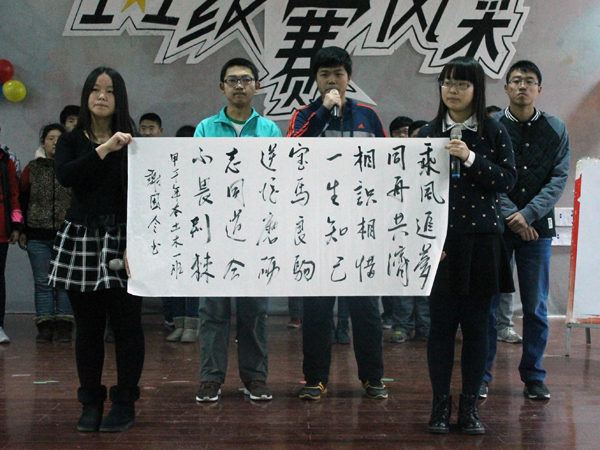 级赛风采
乘风追梦
同舟共济
相识相惜
一生知己
宝马良驹
磨砺
志同道合
不畏荆棘
甲午年冬土木一班
书